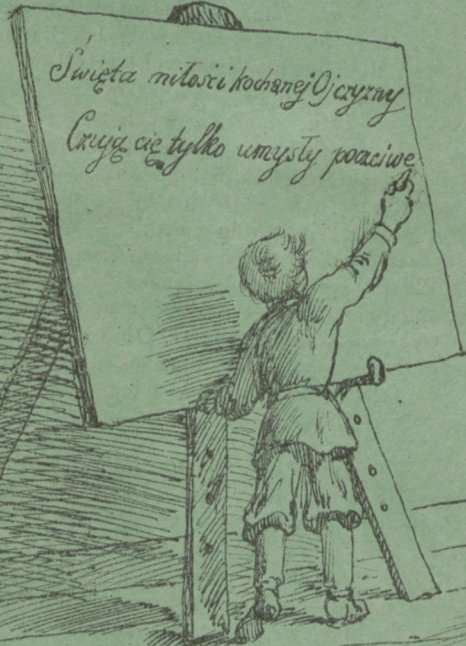 Święta miłości kochanej Ojczyzny
Czują cię tylko umysły poczciwe